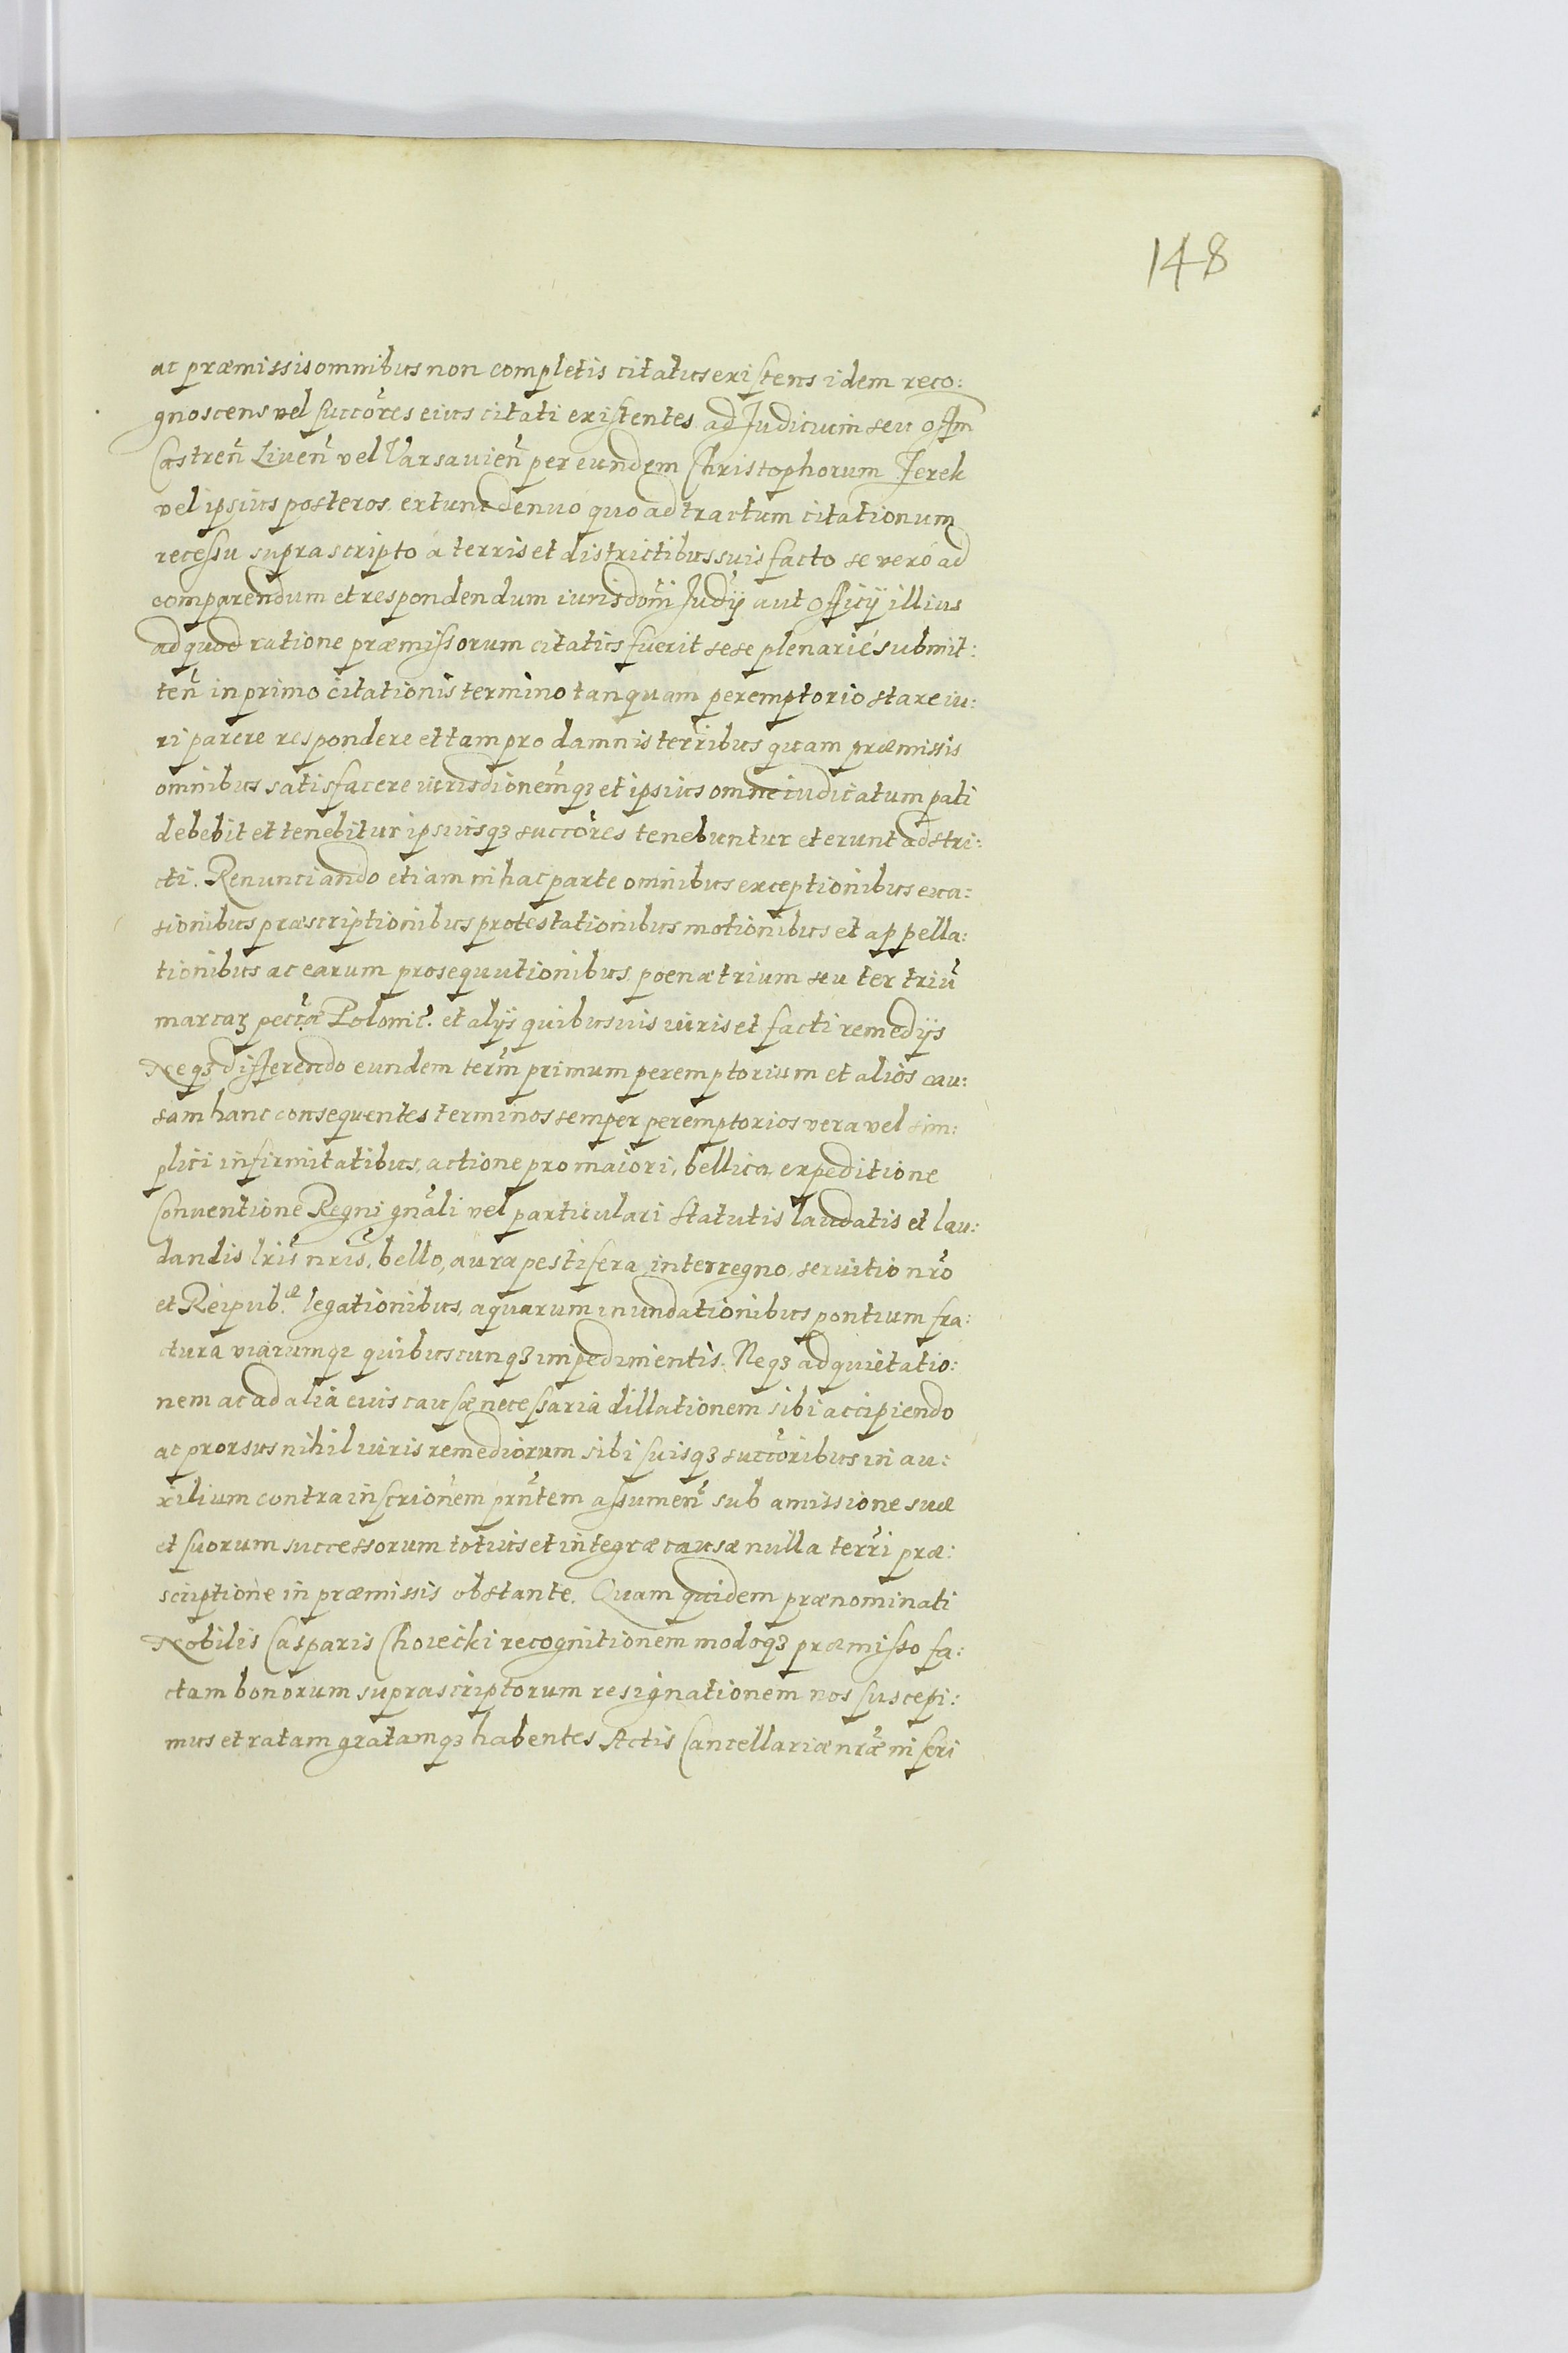 148
ac præmissis omnibus non completis citatus existens idem reco:
gnoscens vel succ̃ores eius citati existentes ad Judicium seu offm̃
Castren̄ Liven̄ vel Varsavien̄ per eundem Christophorum Jerek
vel ipsius posteros. extunc denuo quo ad tractum citationum
recessu suprascripto á terris et districtibus suis facto se veró ad
comparendum et respondendum iurisdom̃ Judỹ aut officij illius
ad quod ratione præmissorum citatus fuerit sese plenarié submit:
ten̄ in primo citationis termino tanquam peremptorio stare iu:
ri parere respondere et tam pro damnis terr̃ibus quam præmissis
omnibus satisfacere iurisdionem̃qȝ et ipsius omne iudicatum pati
debebit et tenebitur ipsiusqȝ succ̃ores tenebuntur et erunt adstri:
cti. Renunciando etiam in hac parte omnibus exceptionibus eva:
sionibus præscriptionibus protestationibus motionibus et appella:
tionibus ac earum prosequutionibus poenæ trium seu ter triũ
marcaȝ pecc̃æ Polonic̃. et alijs quibusuis iuris et facti remedijs
Neqȝ differendo eundem term̃ primum peremptorium et alios cau:
sam hanc consequentes terminos semper peremptorios vera vel sim:
plici infirmitatibus, actione pro maiori, bellica expeditione
Conventione Regni gnãli vel particulari statutis laudatis et lau:
dandis lris̃ nris̃, bello, aura pestifera, interregno, servitio nrõ
et Reipub.æ legationibus, aquarum inundationibus pontium fra:
ctura viarumqȝ quibuscunqȝ impedimentis. Neqȝ ad quietatio:
nem ac ad alia euis causæ necessaria dillationem sibi accipiendo
ac prorsus nihil iuris remediorum sibi suisqȝ succ̃oribus in au:
xilium contra inscrionẽm prñtem assumen̄ sub amissione suæ
et suorum successorum totius et integræ causæ nulla terr̃i præ:
scriptione in præmissis obstante. Quam quidem prænominati
Nobilis Casparis Choiecki recognitionem modoqȝ præmisso fa:
ctam bonorum suprascriptorum resignationem nos suscepi:
mus et ratam gratamqȝ habentes Actis Cancellariæ nrǣ inseri